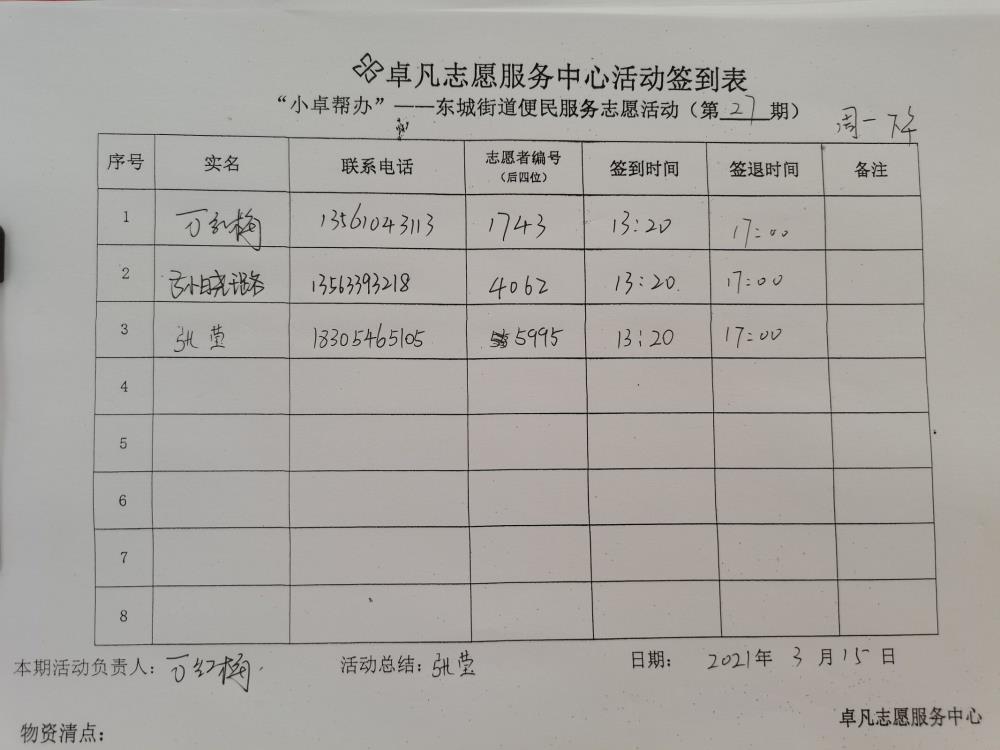 卓凡志愿服务中心活动签到表
“小卓帮办”——东城街道便民服务志愿活动（第27期）
周一下午
序号 实名 联系电话 志愿者编号（后四位） 签到时间 签退时间 备注
1 万红梅 13561043113 1743 13:20 17:00
2 13563393218 4062 13:20 17:00
3 张莹 18305465105 5995 13:20 17:00
4
5
6
7
8
本期活动负责人：万红梅 活动总结：张莹 日期：2021年3月15日
物资清点：
卓凡志愿服务中心